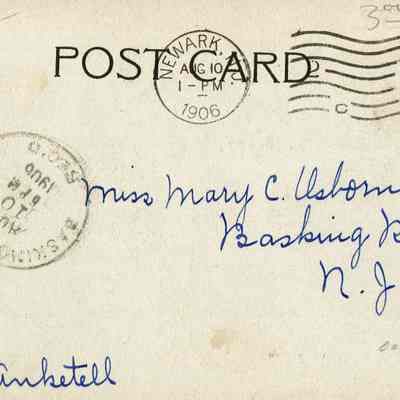 3
POST CARD
NEWARK, N.J.
AUG 10
1-PM
1906
2
C
BASKING
AUG
10
6 PM
1906
REC'D
Miss Mary C. Osborn
Basking R
N. J
Anketell